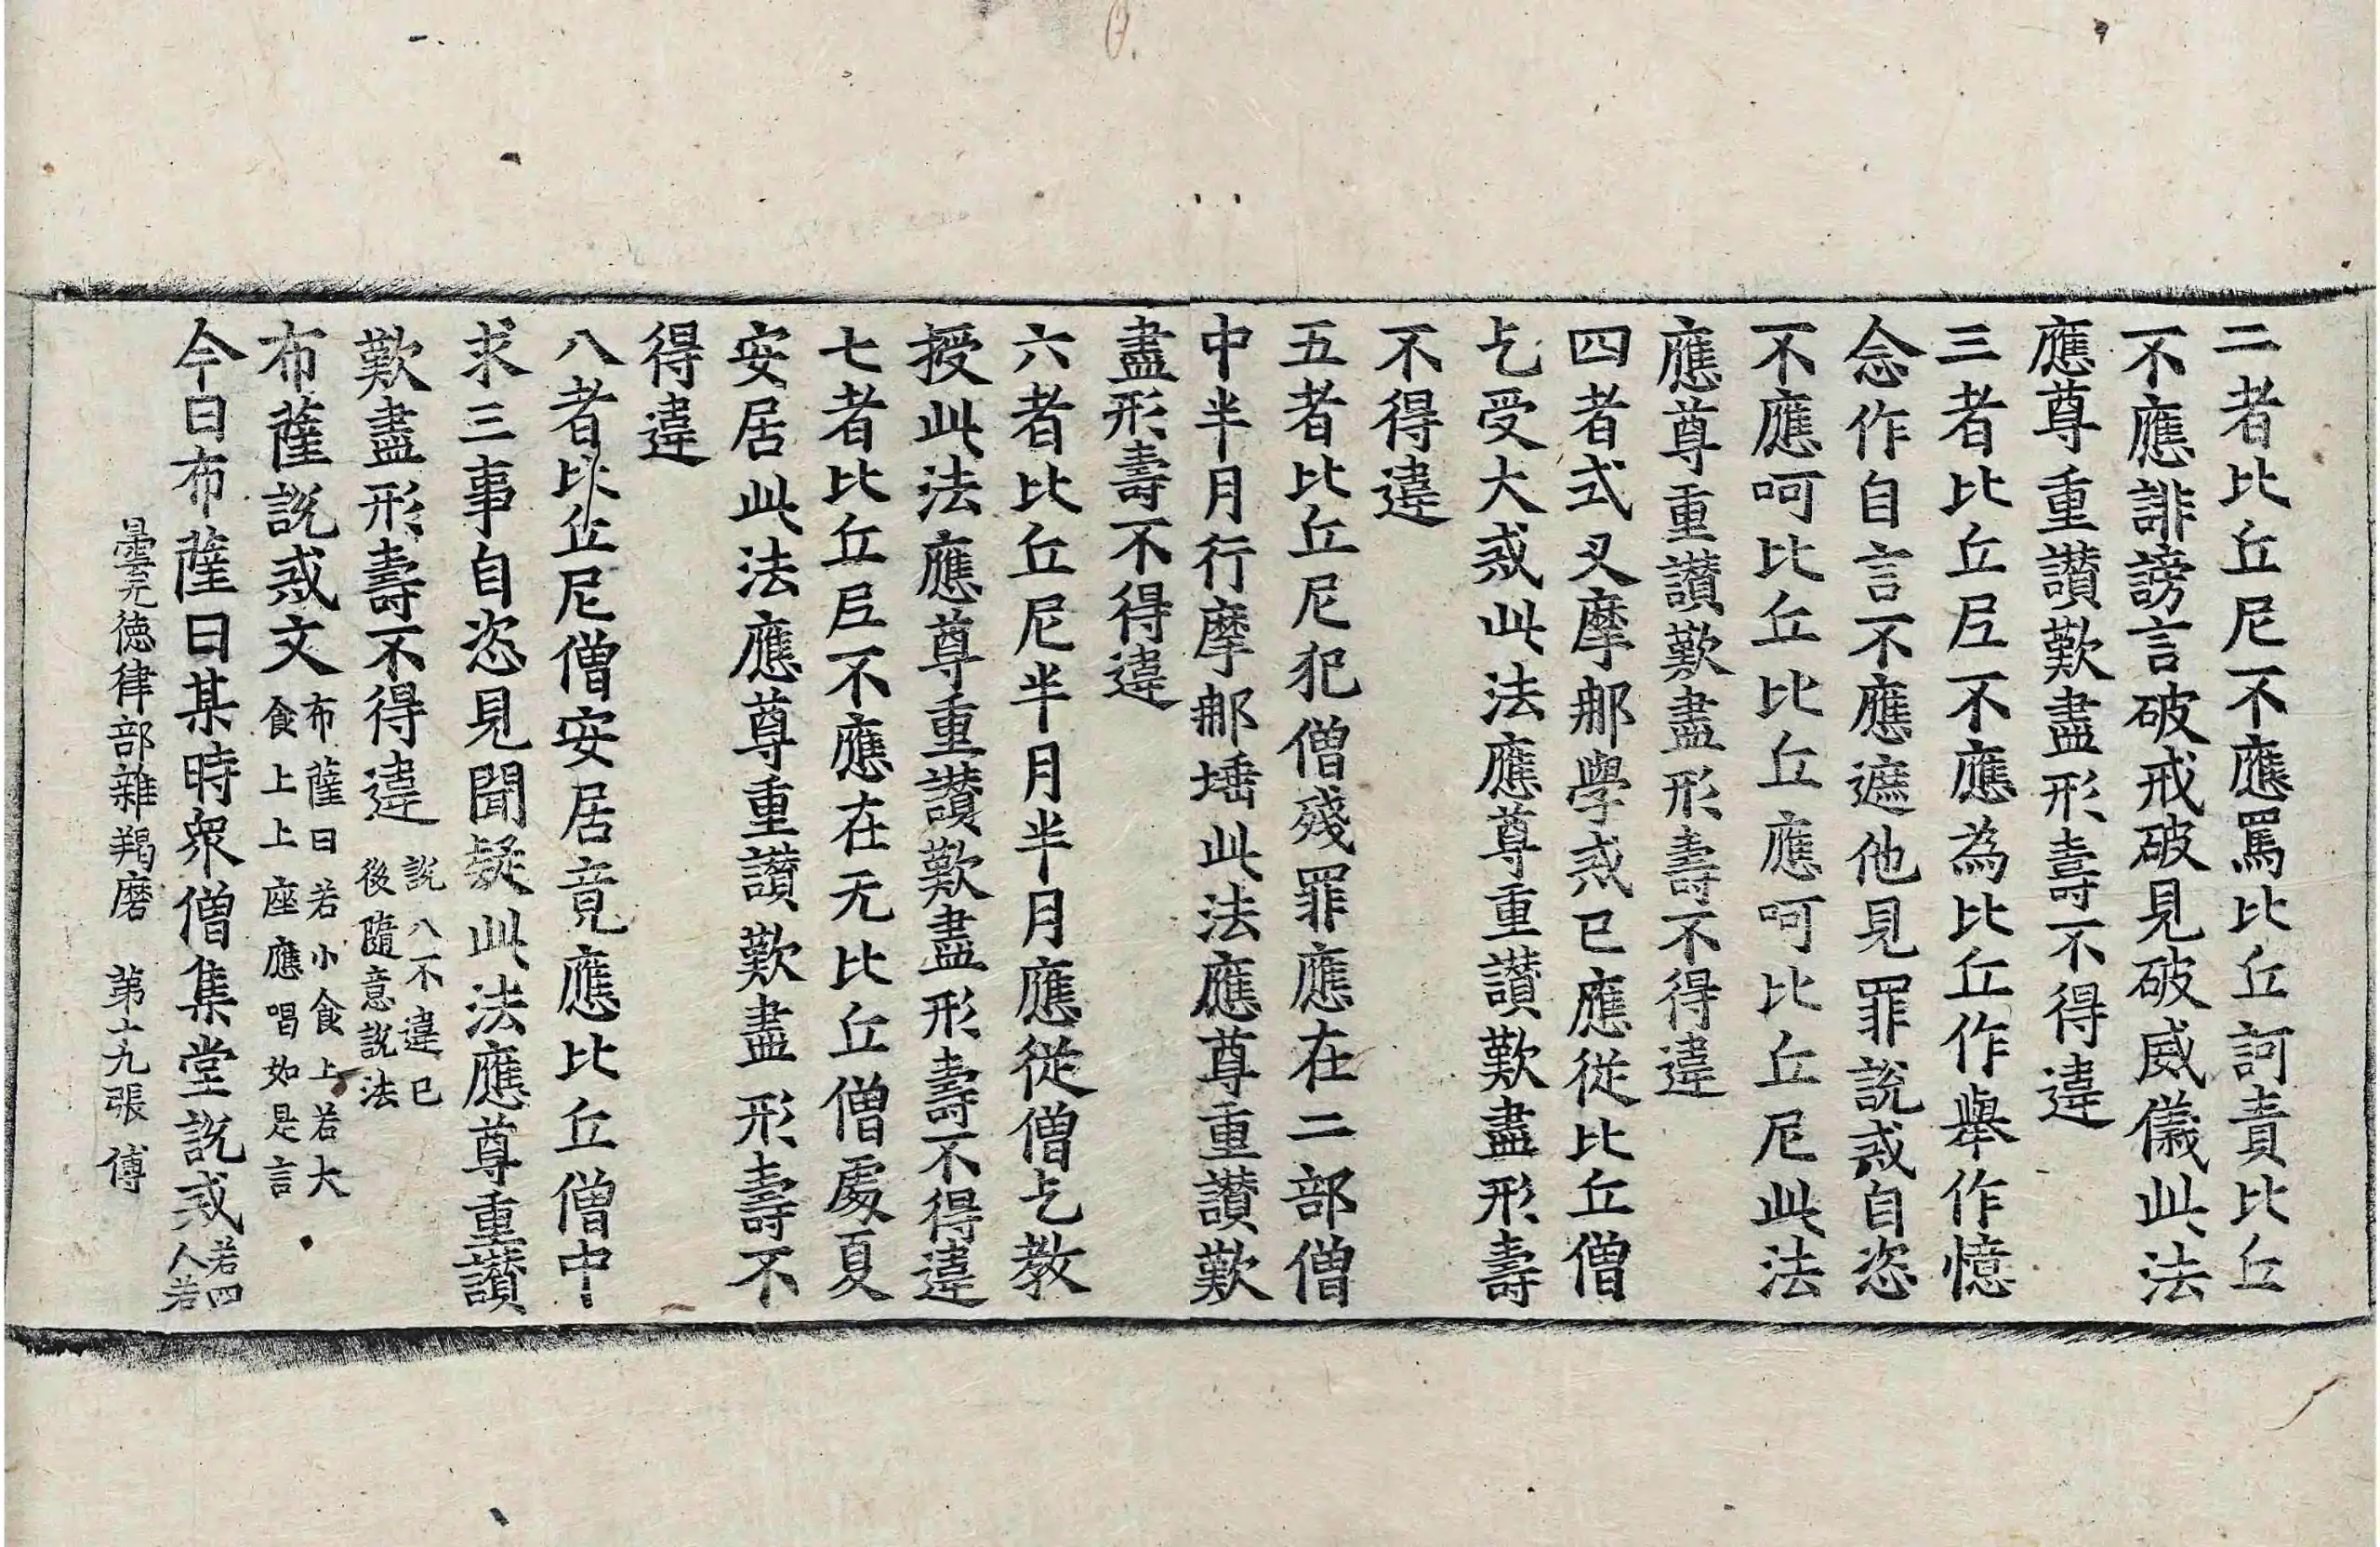 二者比丘尼不應罵比丘訶責比丘
不應誹謗言破戒破見破威儀此法
應尊重讃歎盡形壽不得違
三者比丘尼不應為比丘作舉作憶
念作自言不應遮他見罪說戒自恣
不應呵比丘比丘應呵比丘尼此法
應尊重讃歎盡形壽不得違
四者式叉摩那學戒已應從比丘僧
乞受大戒此法應尊重讃歎盡形壽
不得違
五者比丘尼犯僧殘罪應在二部僧
中半月行摩那埵此法應尊重讃歎
盡形壽不得違
六者比丘尼半月半月應從僧乞教
授此法應尊重讃歎盡形壽不得違
七者比丘尼不應在无比丘僧處夏
安居此法應尊重讃歎盡形壽不
得違
八者比丘尼僧安居竟應比丘僧中
求三事自恣見聞疑此法應尊重讃
歎盡形壽不得違 說八不違已
後隨意說法
布薩說戒文 布薩日若小食上若大
食上上座應唱如是言
今日布薩日某時衆僧集堂說戒 若四
人若
曇无德律部雜羯磨 第十九張 傅